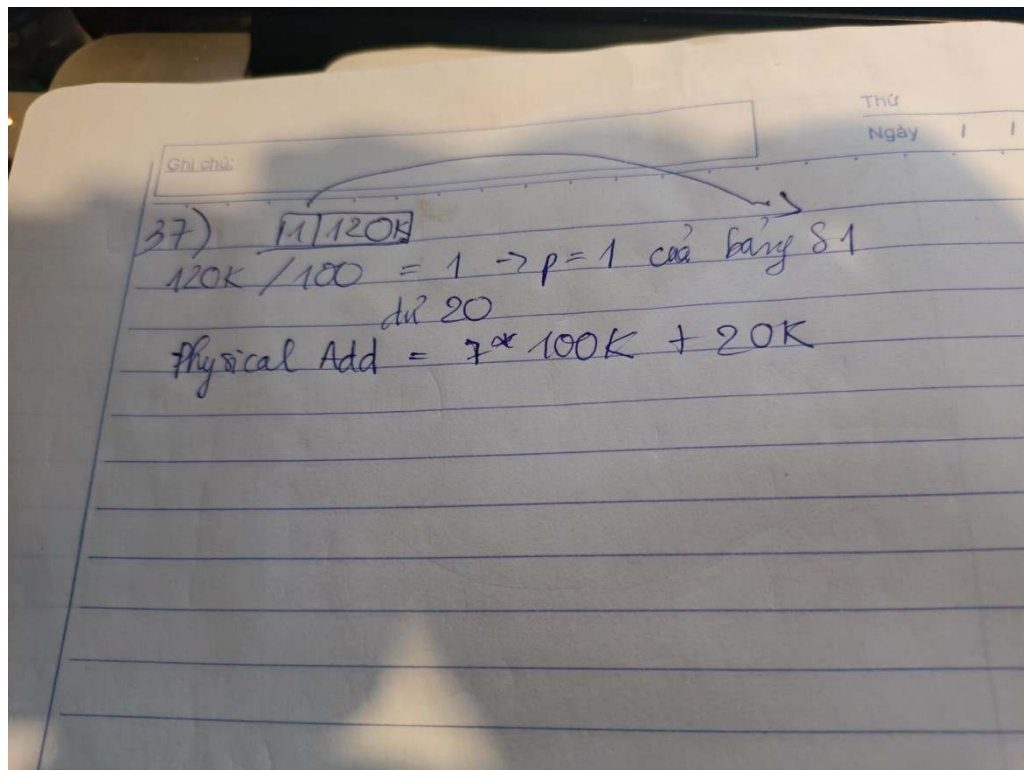 Thứ
Ngày
Ghi chú:
37) 1 | 120K
120K / 100 = 1 -> p = 1 của bảng S1
dư 20
Physical Add = 7 * 100K + 20K